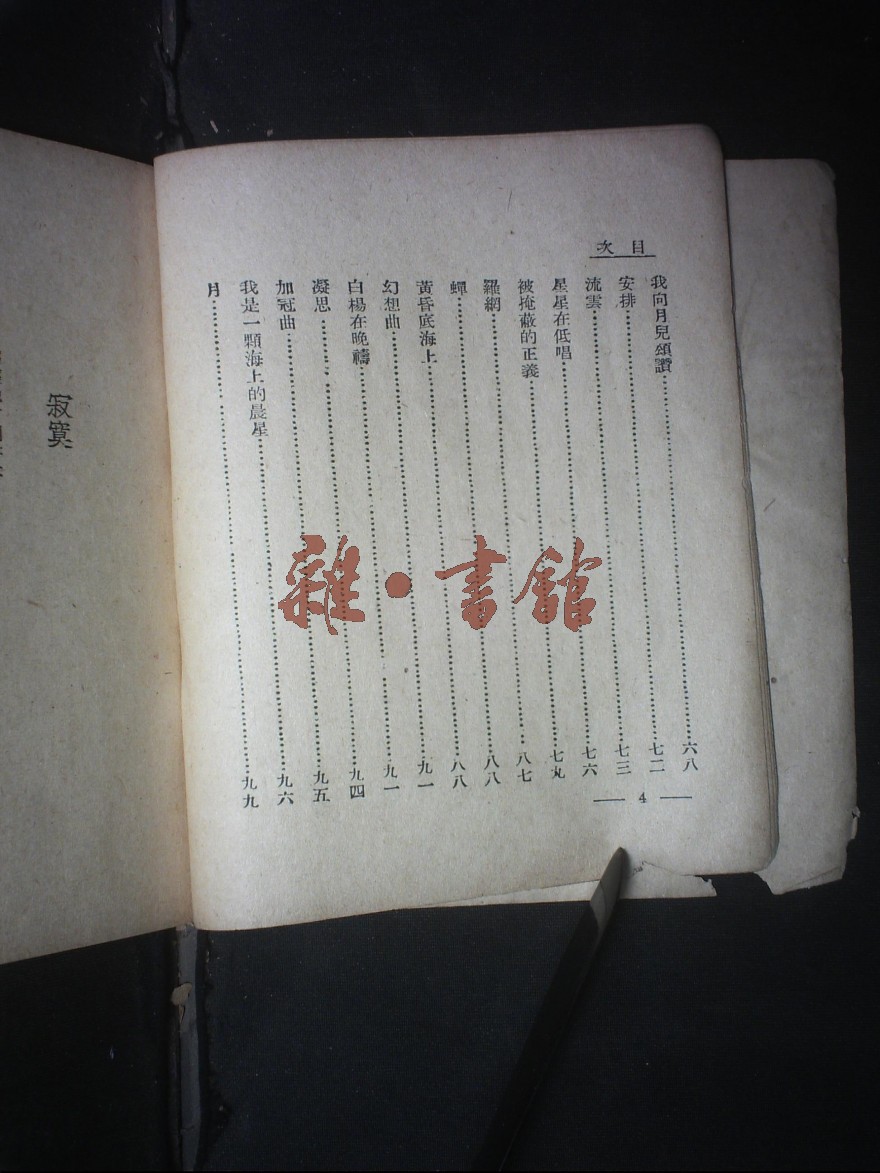 目次
我向月兒頌讚……六八
安排……七二
流雲……七三
星星在低唱……七六
被掩蔽的正義……七九
羅網……八七
蟬……八八
黃昏底海上……八八
幻想曲……九一
白楊在晚禱……九一
凝思……九四
加冠曲……九五
我是一顆海上的晨星……九六
月……九九
— 4 —
寂寞
雜·書館